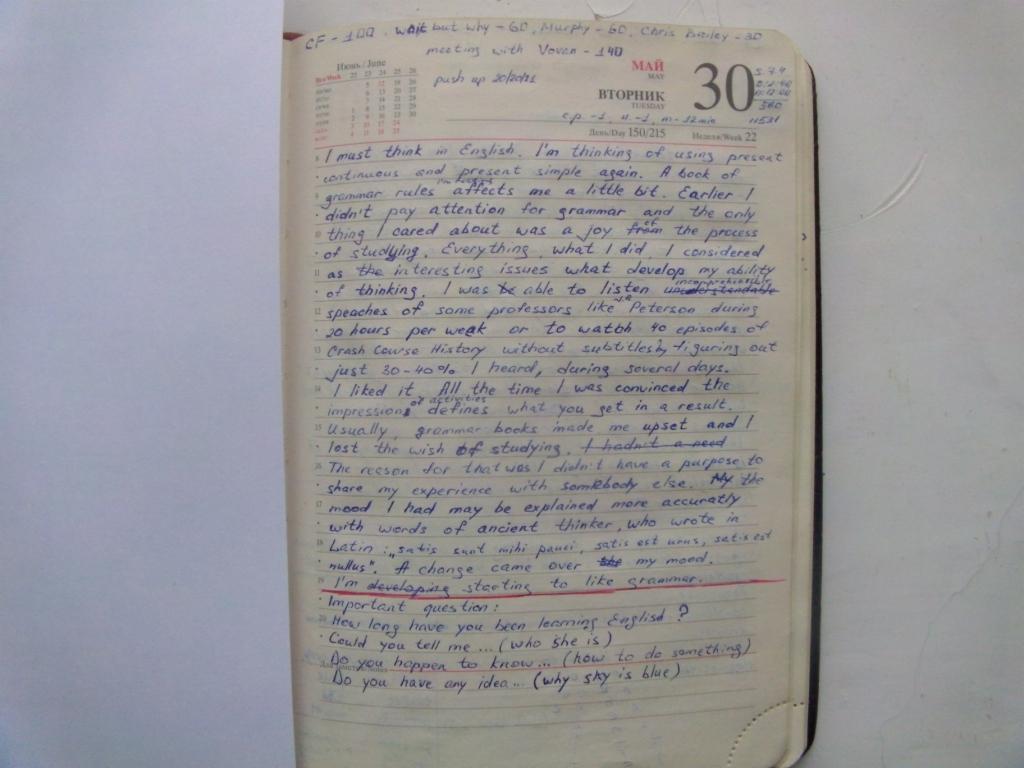 CF - 100. wait but why - 60, Murphy - 60, Chris Bailey - 30
meeting with Vovan - 140
Июнь / June
МАЙ
MAY
30
push up 20/20/21
ВТОРНИК
TUESDAY
c.p. -1, u. -1, m - 12 min
11531
День/Day 150/215
Неделя/Week 22
I must think in English. I'm thinking of using present
continuous and present simple again. A book of
grammar rules affects me a little bit. Earlier I
didn't pay attention for grammar and the only
thing I cared about was a joy from of the process
of studying. Everything, what I did, I considered
as the interesting issues what develop my ability
of thinking. I was able to listen understandable incomprehensible
speaches of some professors like Peterson during
20 hours per week or to watch 40 episodes of
Crash Course History without subtitles, figuring out
just 30-40% I heard, during several days.
I liked it. All the time I was convinced the
impressions of activities defines what you get in a result.
Usually, grammar books made me upset and I
lost the wish of studying. I hadn't a need
The reason for that was I didn't have a purpose to
share my experience with somebody else. My the
mood I had may be explained more accuratly
with words of ancient thinker, who wrote in
Latin: „satis sunt mihi pauci, satis est unus, satis est
nullus". A change came over my mood.
I'm developing starting to like grammar.
Important question:
How long have you been learning English?
Could you tell me... (who she is)
Do you happen to know... (how to do something)
Do you have any idea... (why sky is blue)